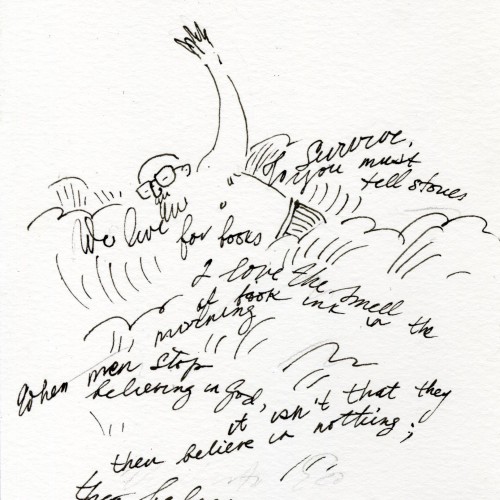 To survive,
you must
tell stories
We live
for books
I love the smell
of book ink in the
morning
When men stop
believing in God,
it isn't that they
then believe in nothing;
they believe